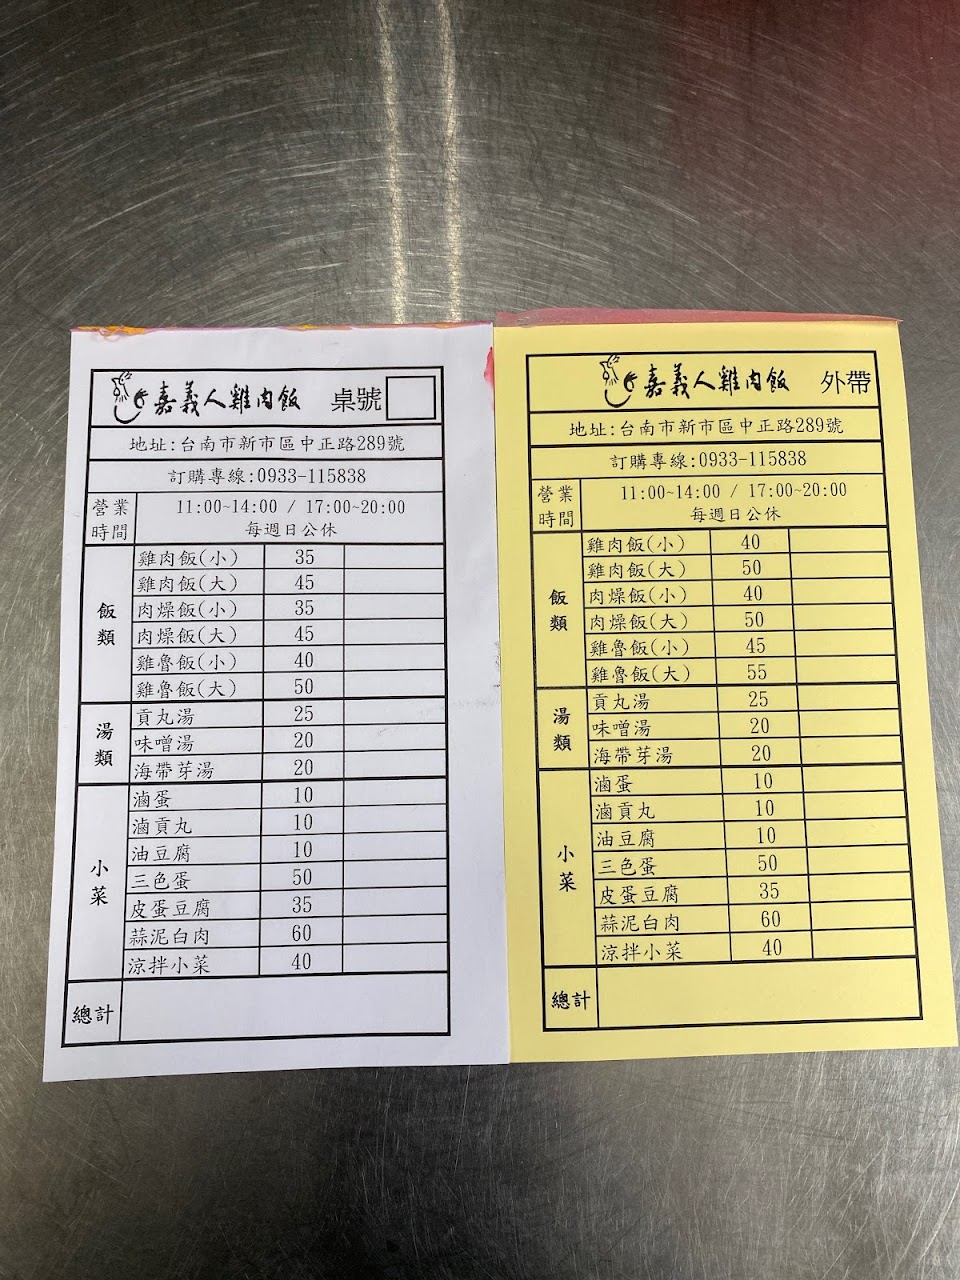 嘉義人雞肉飯 桌號
地址:台南市新市區中正路289號
訂購專線:0933-115838
營業時間
11:00~14:00 / 17:00~20:00
每週日公休
飯類
雞肉飯(小) 35
雞肉飯(大) 45
肉燥飯(小) 35
肉燥飯(大) 45
雞魯飯(小) 40
雞魯飯(大) 50
湯類
貢丸湯 25
味噌湯 20
海帶芽湯 20
小菜
滷蛋 10
滷貢丸 10
油豆腐 10
三色蛋 50
皮蛋豆腐 35
蒜泥白肉 60
涼拌小菜 40
總計
嘉義人雞肉飯 外帶
地址:台南市新市區中正路289號
訂購專線:0933-115838
營業時間
11:00~14:00 / 17:00~20:00
每週日公休
飯類
雞肉飯(小) 40
雞肉飯(大) 50
肉燥飯(小) 40
肉燥飯(大) 50
雞魯飯(小) 45
雞魯飯(大) 55
湯類
貢丸湯 25
味噌湯 20
海帶芽湯 20
小菜
滷蛋 10
滷貢丸 10
油豆腐 10
三色蛋 50
皮蛋豆腐 35
蒜泥白肉 60
涼拌小菜 40
總計